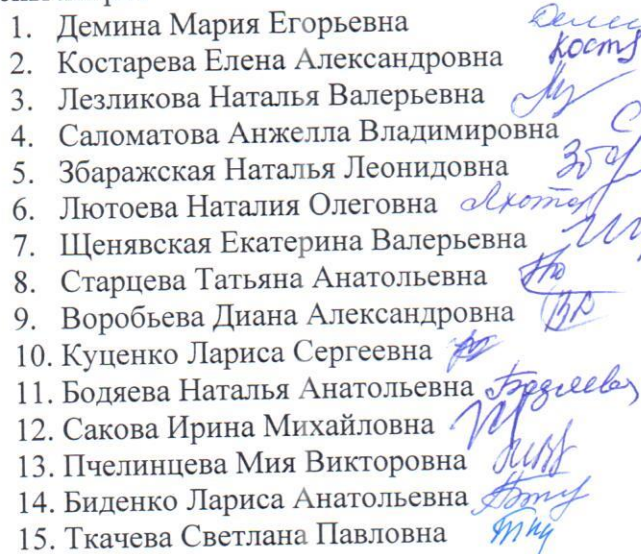 1. Демина Мария Егорьевна
2. Костарева Елена Александровна
3. Лезликова Наталья Валерьевна
4. Саломатова Анжелла Владимировна
5. Збаражская Наталья Леонидовна
6. Лютоева Наталия Олеговна
7. Щенявская Екатерина Валерьевна
8. Старцева Татьяна Анатольевна
9. Воробьева Диана Александровна
10. Куценко Лариса Сергеевна
11. Бодяева Наталья Анатольевна
12. Сакова Ирина Михайловна
13. Пчелинцева Мия Викторовна
14. Биденко Лариса Анатольевна
15. Ткачева Светлана Павловна